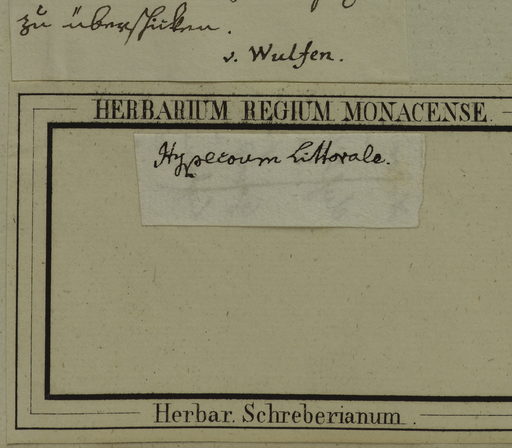 zu überschicken.
v. Wulfen.
HERBARIUM REGIUM MONACENSE.
Hypecoum littorale.
Herbar. Schreberianum.